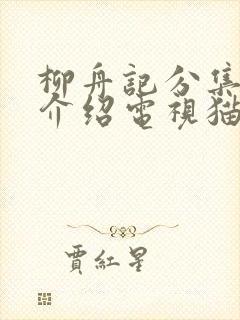 柳舟記分集
介绍電視猫
賈紅星